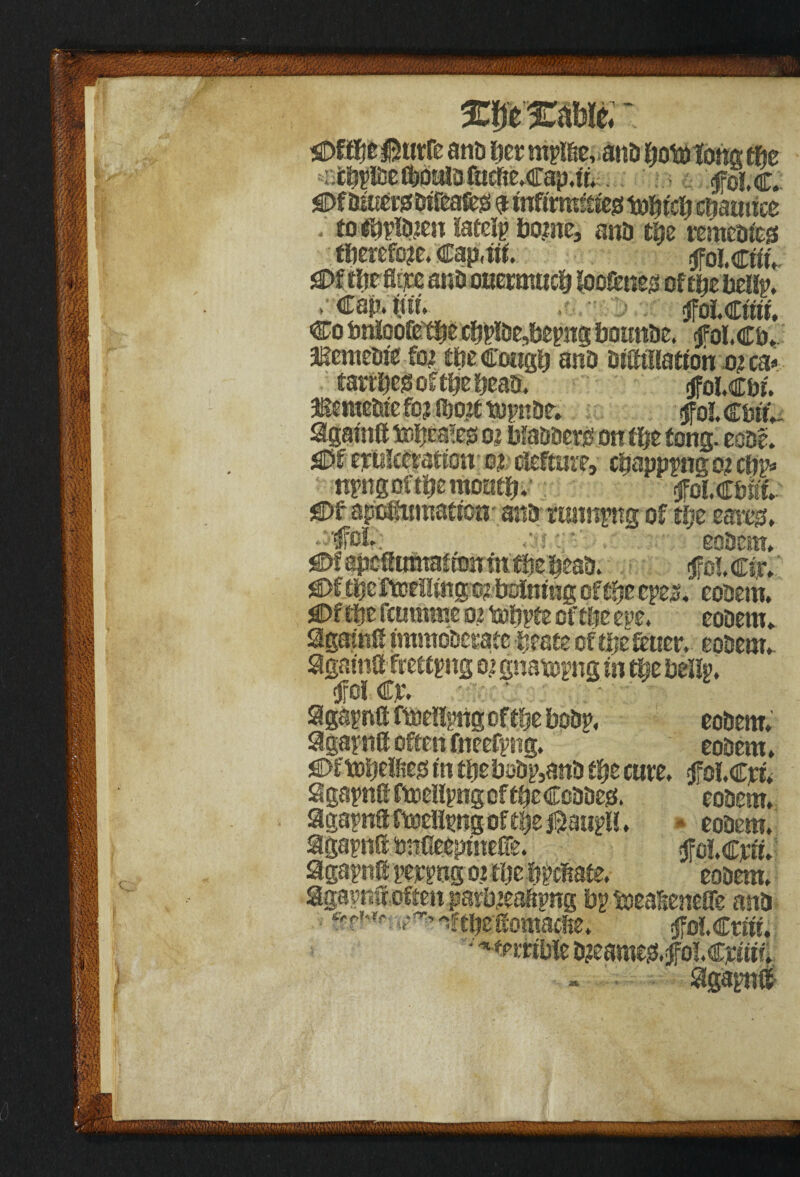 The Table.
Of the Nurse and her mylke, and how long the
chylde should sucke. Cap.ii. Fol.C.
Of diuers diseases & infirmities which chaunce
to chyldren lately borne, and the remedies
therefore. Cap.iii. Fol.Ciii.
Of the flixe and ouermuch loosenes of the belly.
Cap. iiii. Fol.Ciiii.
To vnloose the chylde, beyng bounde. Fol.Cv.
Remedie for the Cough and distillation or ca-
tarrhes of the head. Fol.Cvi.
Remedie for short wynde. Fol.Cvii.
Against wheales or bladders on the tong. eodē.
Of exulceration or clefture, chappyng or chy-
nyng of the mouth. Fol.Cviii.
Of apostumation and runnyng of the eares.
Fol. eodem.
Of apostumation in the head. Fol.Cix.
Of the swelling or bolning of the eyes. eodem.
Of the scumme or whyte of the eye. eodem.
Against immoderate heate of the feuer. eodem.
Against frettyng or gnawyng in the belly.
Fol Cx.
Agaynst swellyng of the body. eodem.
Agaynst often sneesyng. eodem.
Of whelkes in the body, and the cure. Fol.Cxi.
Agaynst swellyng of the Coddes. eodem.
Agaynst swellyng of the Nauyll. eodem.
Agaynst vnsleepinesse. Fol.Cxii.
Agaynst yexyng or the hyckate. eodem.
Agaynst often parbreakyng by weakenesse and
of the stomacke. Fol.Cxiii.
terrible dreames. Fol.Cxiiii.
Agaynst